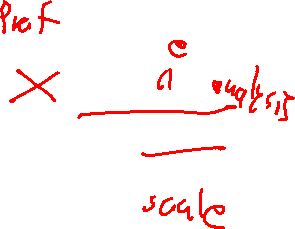 Prof
e
a
analysis
scale